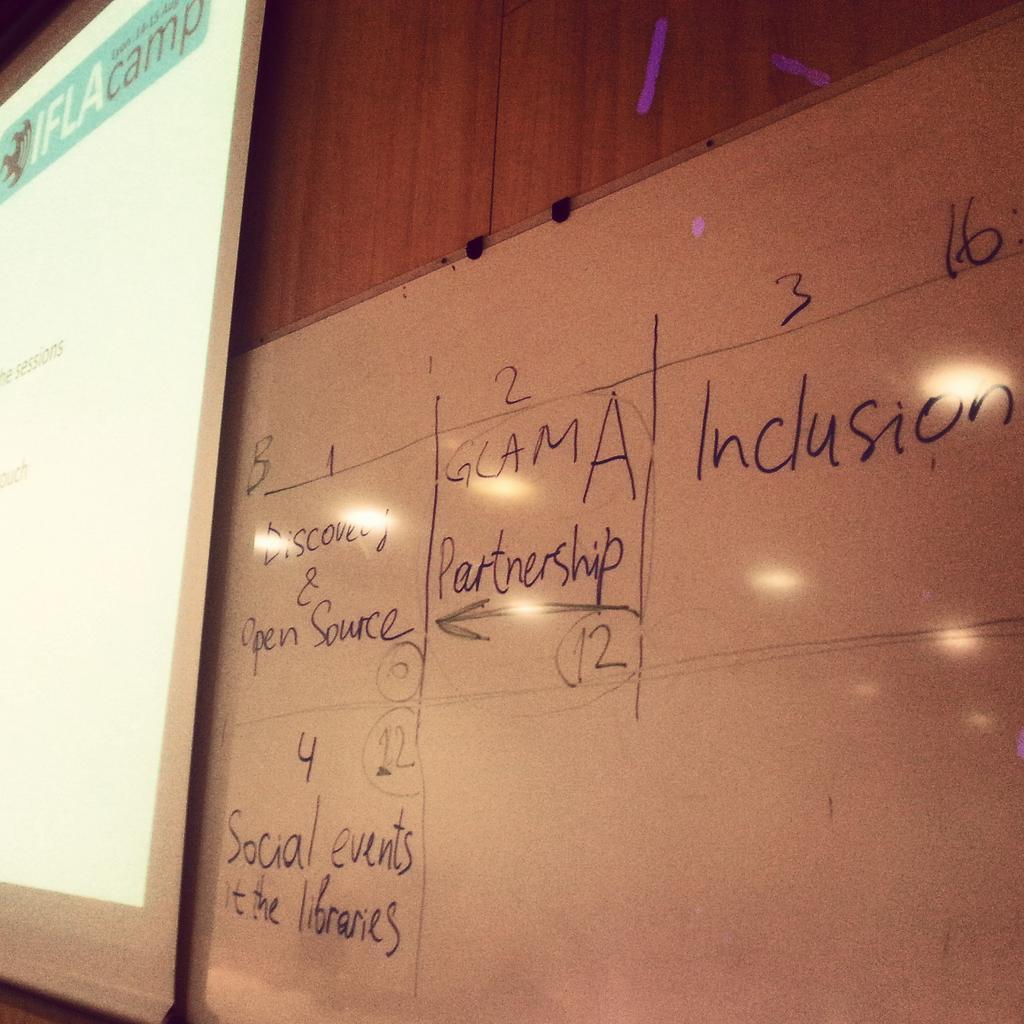 IFLA camp
he sessions
ouch
16:
3
2
B 1
GLAM A
Inclusion
Discovery
&
Open Source
Partnership
0
12
4
12
Social events
t the libraries